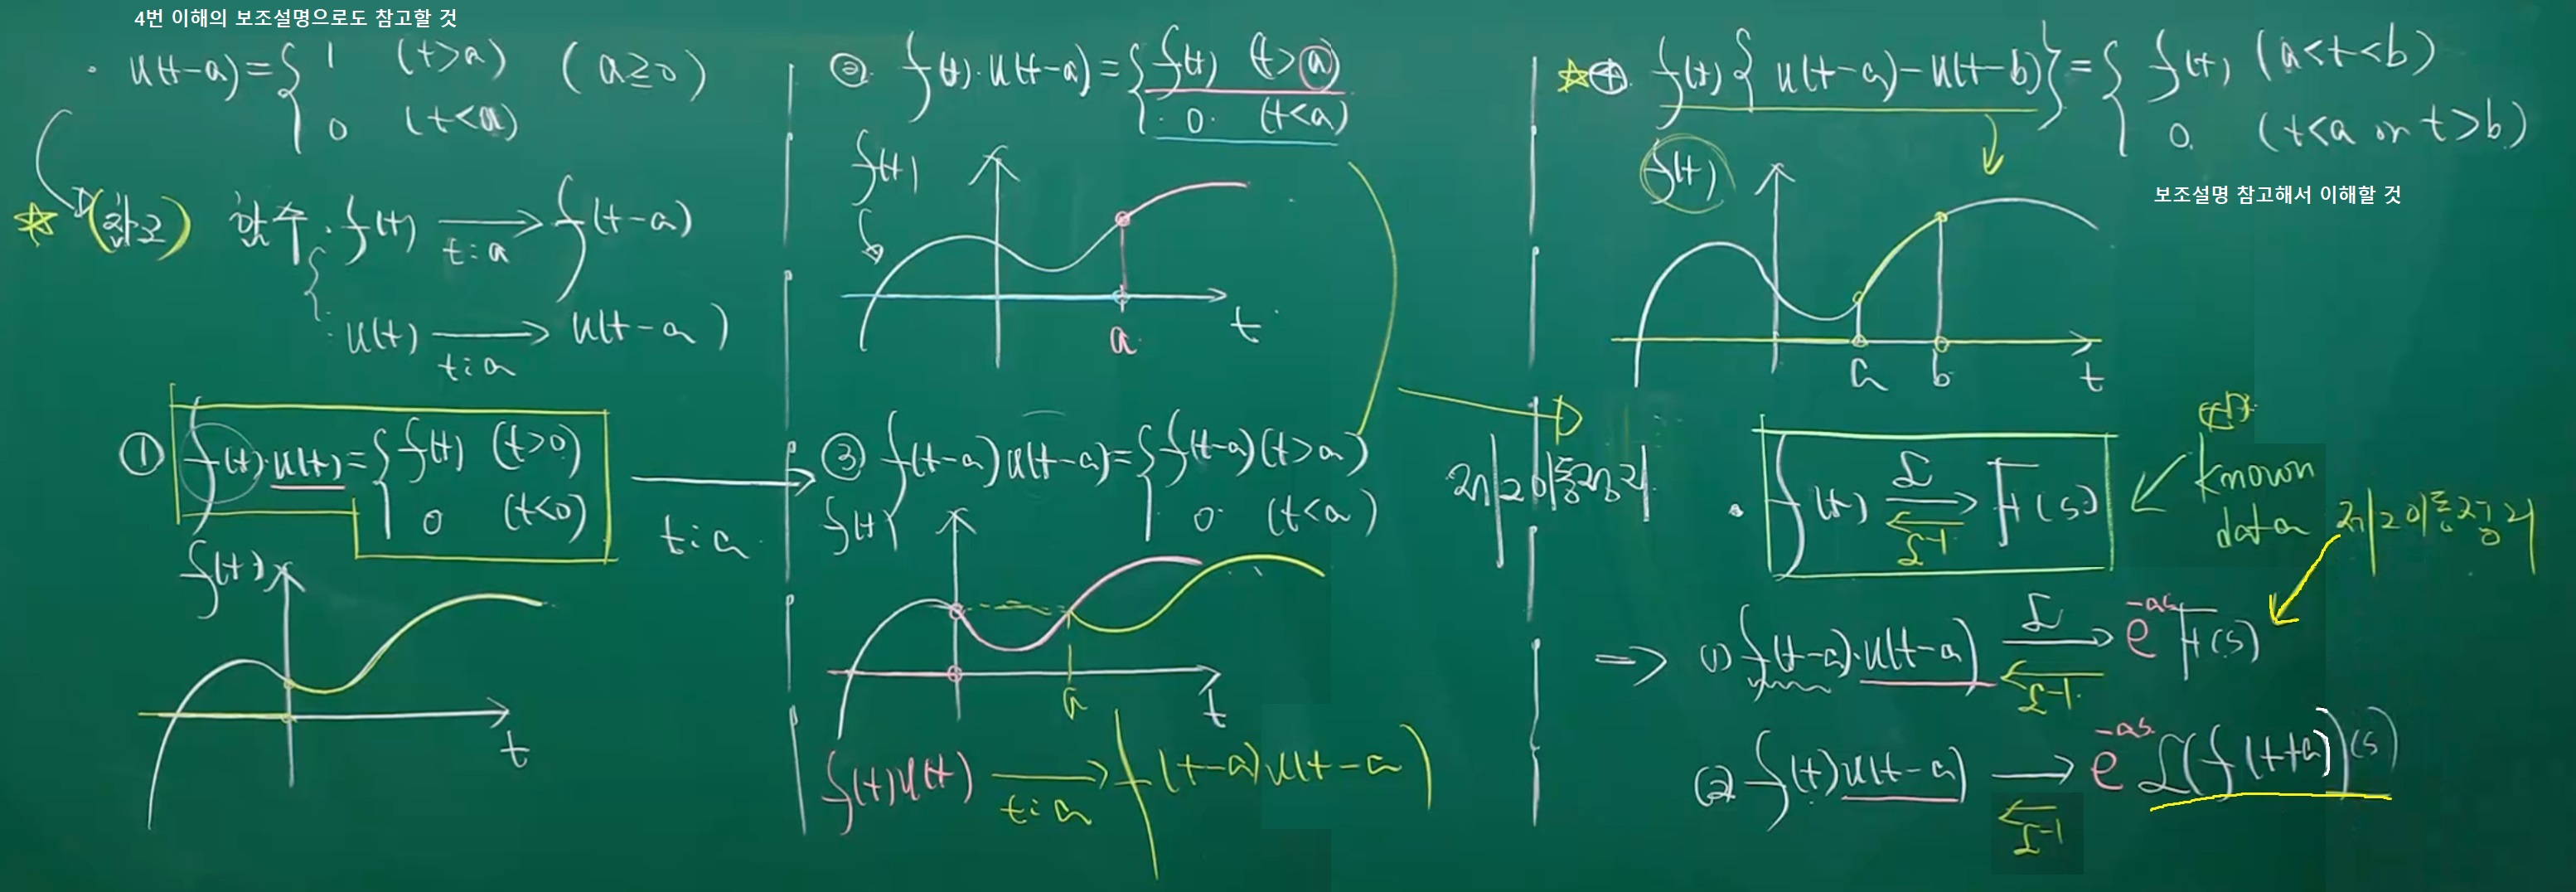 4번 이해의 보조설명으로도 참고할 것
· u(t-a) = { 1 (t>a) (a≥0)
0 (t<a)
☆ (참고) 함수 · f(t) → f(t-a)
t: a
u(t) → u(t-a)
t: a
① f(t)·u(t) = { f(t) (t>0)
0 (t<0)
f(t)
t
t: a
② f(t)·u(t-a) = { f(t) (t>a)
0 (t<a)
f(t)
a
t
③ f(t-a)u(t-a) = { f(t-a) (t>a)
0 (t<a)
f(t)
a
t
f(t)u(t) → f(t-a)u(t-a)
t: a
☆④ f(t){u(t-a)-u(t-b)} = { f(t) (a<t<b)
0 (t<a or t>b)
보조설명 참고해서 이해할 것
f(t)
a b t
제2이동정리
· f(t) ℒ ⇄ ℒ⁻¹ F(s)
known
data
제2이동정리
⇒ (1) f(t-a)·u(t-a) ℒ ⇄ ℒ⁻¹ e^{-as} F(s)
(2) f(t)u(t-a) → e^{-as} ℒ(f(t+a))(s)
← ℒ⁻¹